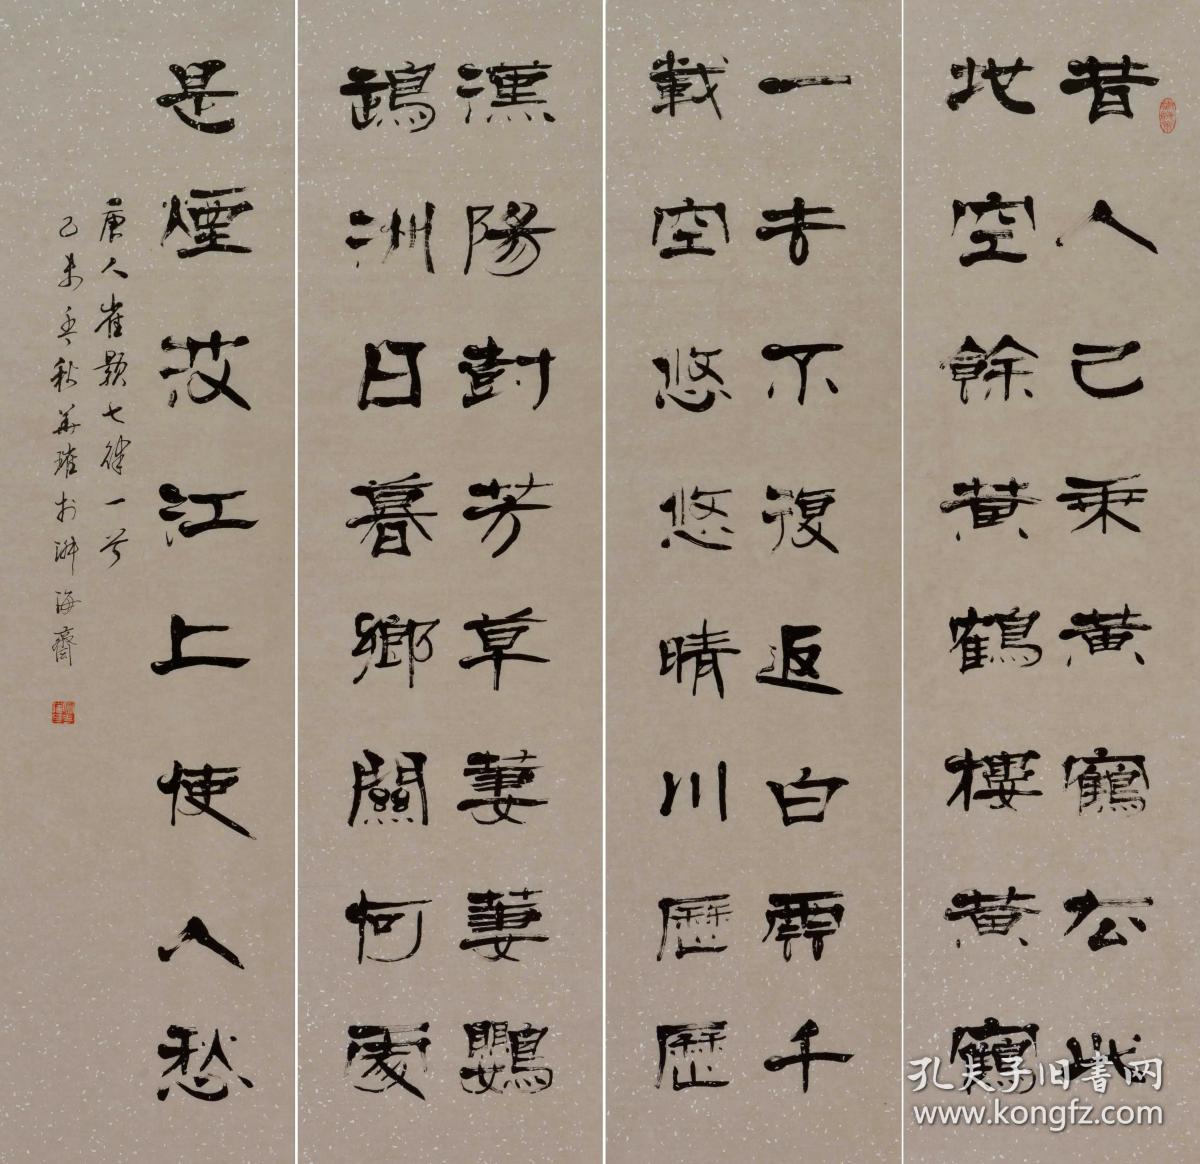 昔人已乘黃鶴厺此
地空餘黃鶴樓黃鶴
一去不復返白雲千
載空悠悠晴川歷歷
漢陽尌芳草萋萋鸚
鵡洲日暮鄉關何處
是煙波江上使人愁
唐人崔顥七律一首
己未 秋 於 海齋
孔夫子旧书网
www.kongfz.com